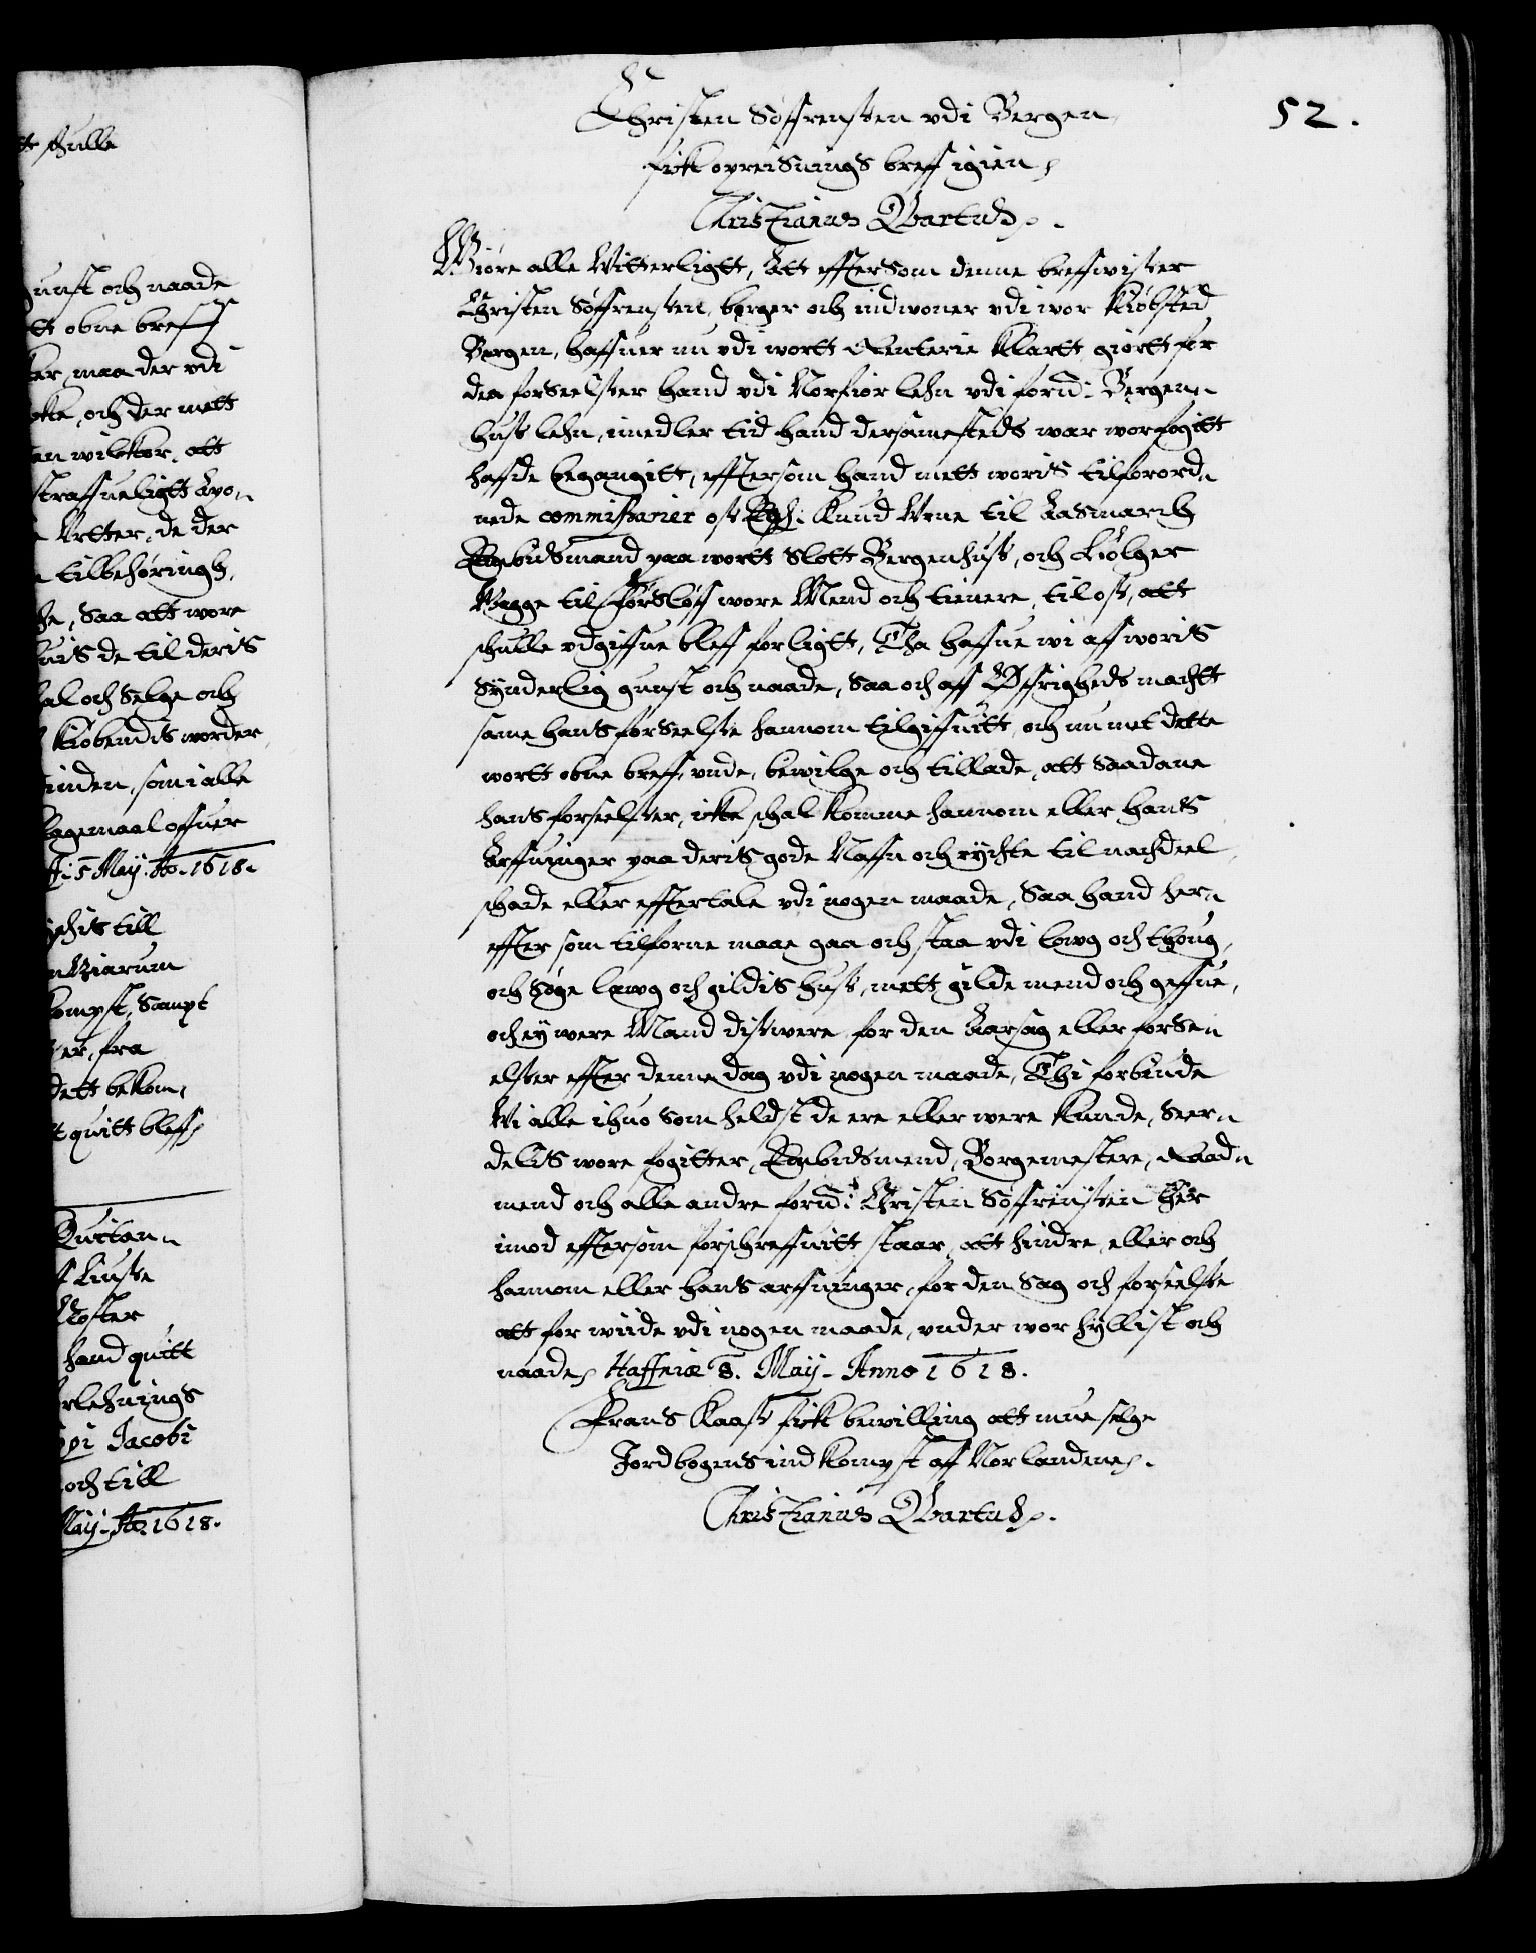 52.
Christen Søffrensten vdi Bergen
fick opreisnings breff igien
Christianus Qvartus.
Giøre alle Witterligtt, Att effter som denne breffwiser
Christen Søffrensten, borger och indwoner vdi wor Kiøbsted
Bergen, haffuer nu vdi wortt Renterie Klartt giørtt for
den forseelser hand vdi Norfiør lehn vdi fornd: Bergen-
hus lehn, imedler tid hand dersamesteds war wor fogitt
hafde begangitt, efftersom hand mett woris tilforord-
nede commissarier os Elsk: Knud Vrne til Aasmarch
Embidsmand paa wortt Slott Bergenhus, och Holger
Wagge til Førsløff wore Mend och tienere, til os, att
schulle vdgiffue bleff forligtt, Tha haffue wi aff woris
Synderlig gunst och naade, Saa och aff Øffrigheds machtt
same hans forseelse hannom tilgiffuitt, och nu met dette
wortt obne breff, vnde, bewilge och tillade, att Saadane
hans forseelser, icke schal komme hannom eller hans
Arffuinger paa deris gode Naffn och rychte til nachdeel
schade eller effter tale vdi nogen maade, Saa hand her-
effter som tilforne maae gaa och staa vdi lowg och thoug,
och søge lawg och gildis hus, mett gilde mend och geffue,
och ey were Mand dis were for den Aarsag eller forse-
elser effter denne dag vdi nogen maade, Thi forbiude
Wi alle ihuo som heldst de ere eller were kunde, Seer-
delis wore fogitter, Embidsmend, Borgemestere, Raad-
mend och alle andre fornd: Christen Søffrensten her
imod eftersom forschreffuitt staar, att hindre, eller och
hannom eller hans arffuinger, for den Sag och forseelse
att for wiide vdi nogen maade, vnder wor hyllist och
naade Haffniæ 8. Maij. Anno 1618.
Frans Kaas fick bewilling att mue selge
Jordbogens indkompst aff Norlandene.
Christianus Qvartus.
schulle
gunst och naade
tt obne breff
maa der vdi
och der mett
en wilckor, att
straffueligtt
de der
tilbehøringh,
Saa att wore
de til deris
och Selge och
Kiøbendis worder
inden, som i alle
lagemaal offuer
5 Maij. Ao. 1618.
till
kompst, Sampt
er, fra
dett bekom-
quitt bleff
Quitan-
Kloster
hand quitt
rlehnings
ppi Jacobi
och till
Maij. Ao. 1618.